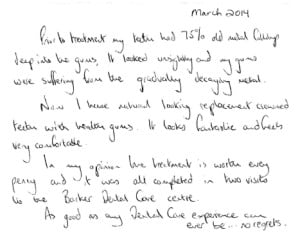 March 2014
Prior to treatment my teeth had 75% old metal fillings
deep into the gums, It looked unsightly and my gums
were suffering from the gradually decaying metal.
Now I have natural looking replacement crowned
teeth with healthy gums. It looks fantastic and feels
very comfortable.
In my opinion the treatment is worth every
penny and it was all completed in two visits
to the Barker Dental Care centre.
As good as any Dental Care experience can
ever be... no regrets.